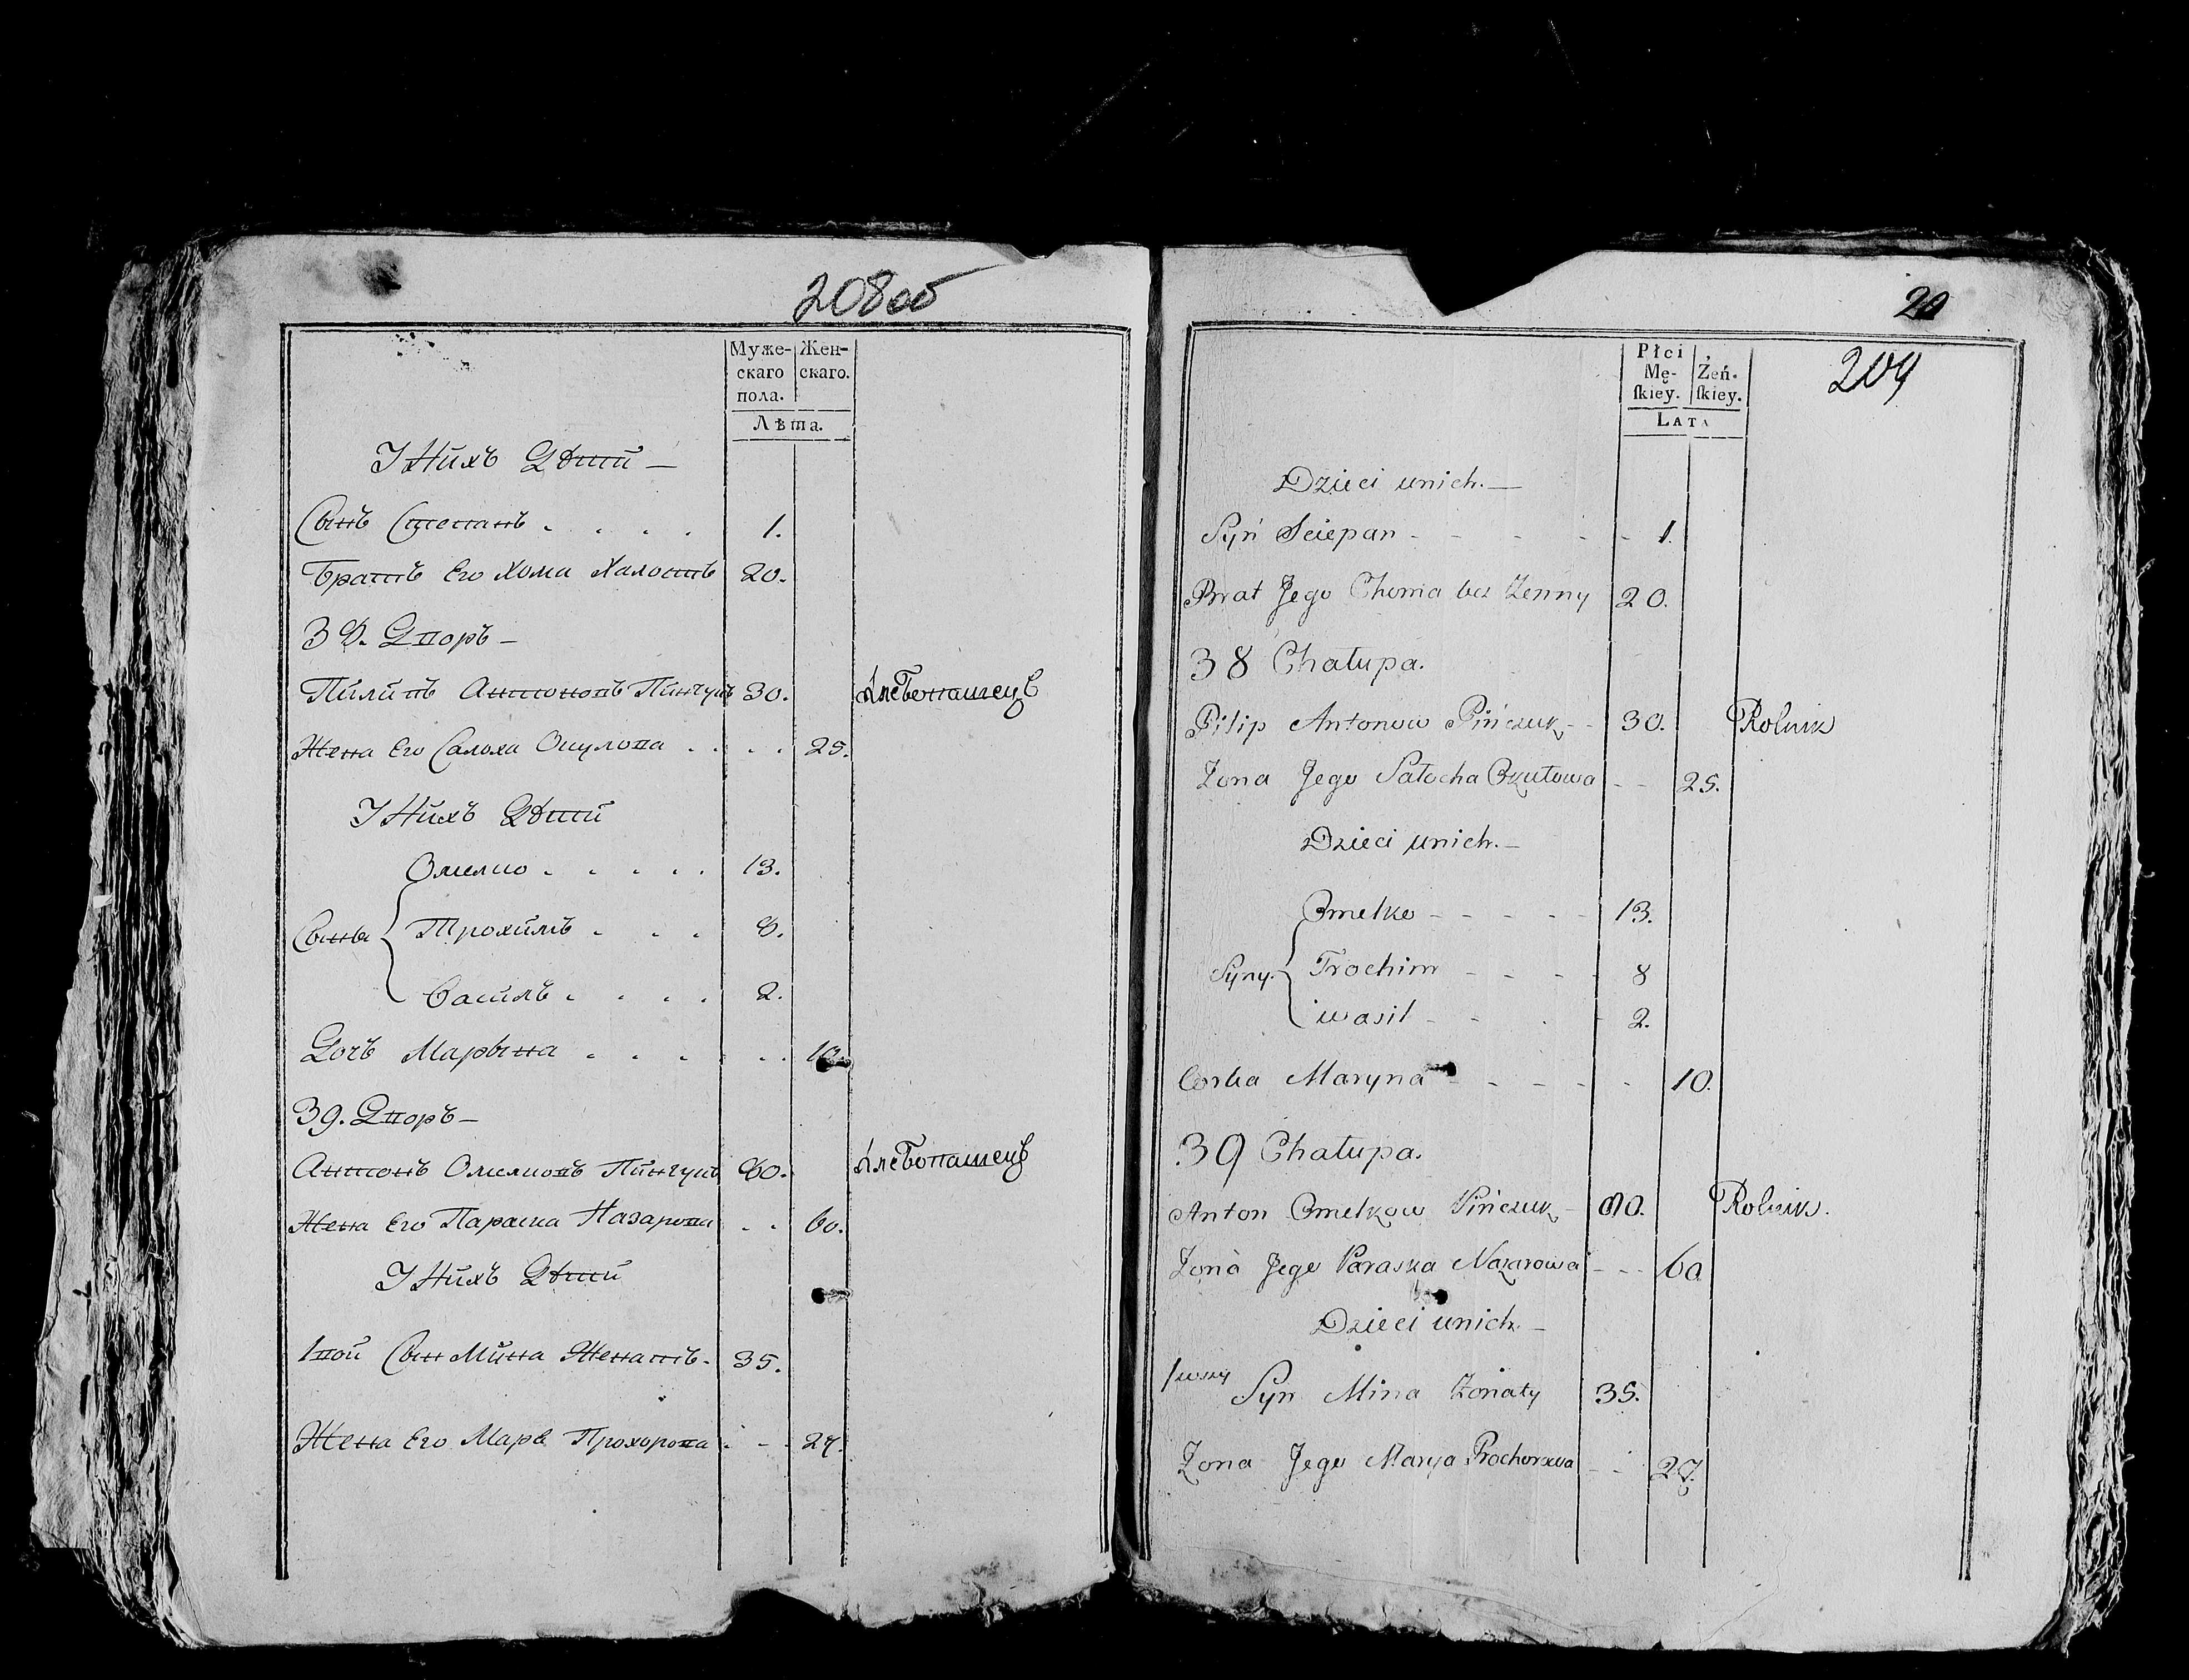 208об
Муже- Жен-
скаго скаго.
пола.
Лѣта.
У Нихъ Дѣтей —
Сынъ Степанъ . . . . 1.
Братъ Его Хома Халостъ 20.
38. Дворъ —
Пилипъ Антоновъ Пинчукъ 30. Хлебопашецъ
Жена Его Салоха Оцулова . . . . 25.
У Нихъ Дѣтей
Омелко . . . . . 13.
Сыны Трохимъ . . . 8.
Василь . . . . 2.
Дочь Марына . . . . . . 10.
39. Дворъ —
Антонъ Омелковъ Пинчукъ 80. Хлебопашецъ
Жена Его Параска Назарова . . 60.
У Нихъ Дѣтей
1вой Сын Мина Женатъ. 35.
Жена Его Маря Прохорова . - . 27.
20
209
Płci
Mę- Żeń-
ſkiey. ſkiey.
LATA
Dzieci unich. —
Syń Sciepan - - - - - 1.
Brat Jego Choma bez Żenny 20.
38 Chałupa.
Pilip Antonow Pińczuk - - 30. Rolnik
Zona Jego Sałocha Ckułowa - - 25.
Dzieci unich. —
Omelko - - - - - 13.
Syny. Trochim - - - - 8
wasil - - . - 2.
Corka Maryna - - - - - 10.
39 Chałupa.
Anton Omelkow Pińczuk - 80. Rolnik.
Zona Jego Paraska Nazarowa - - - 60
Dzieci unich —
1wszy Syn Mina Żoniaty 35.
Zona Jego Marya Prochorowa - - 27.